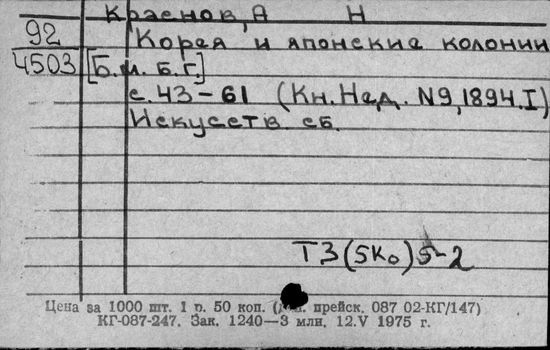 Краснов, А Н
92
4503
Корея и японские колонии
[Б.м. Б.г.]
с. 43-61 (Кн. Нед. N9, 1894. I)
Искусств. сб.
Т3(5Ко)5-2
Цена за 1000 шт. 1 р. 50 коп. ( прейск. 087 02-КГ/147)
КГ-087-247. Зак. 1240—3 млн. 12.V 1975 г.